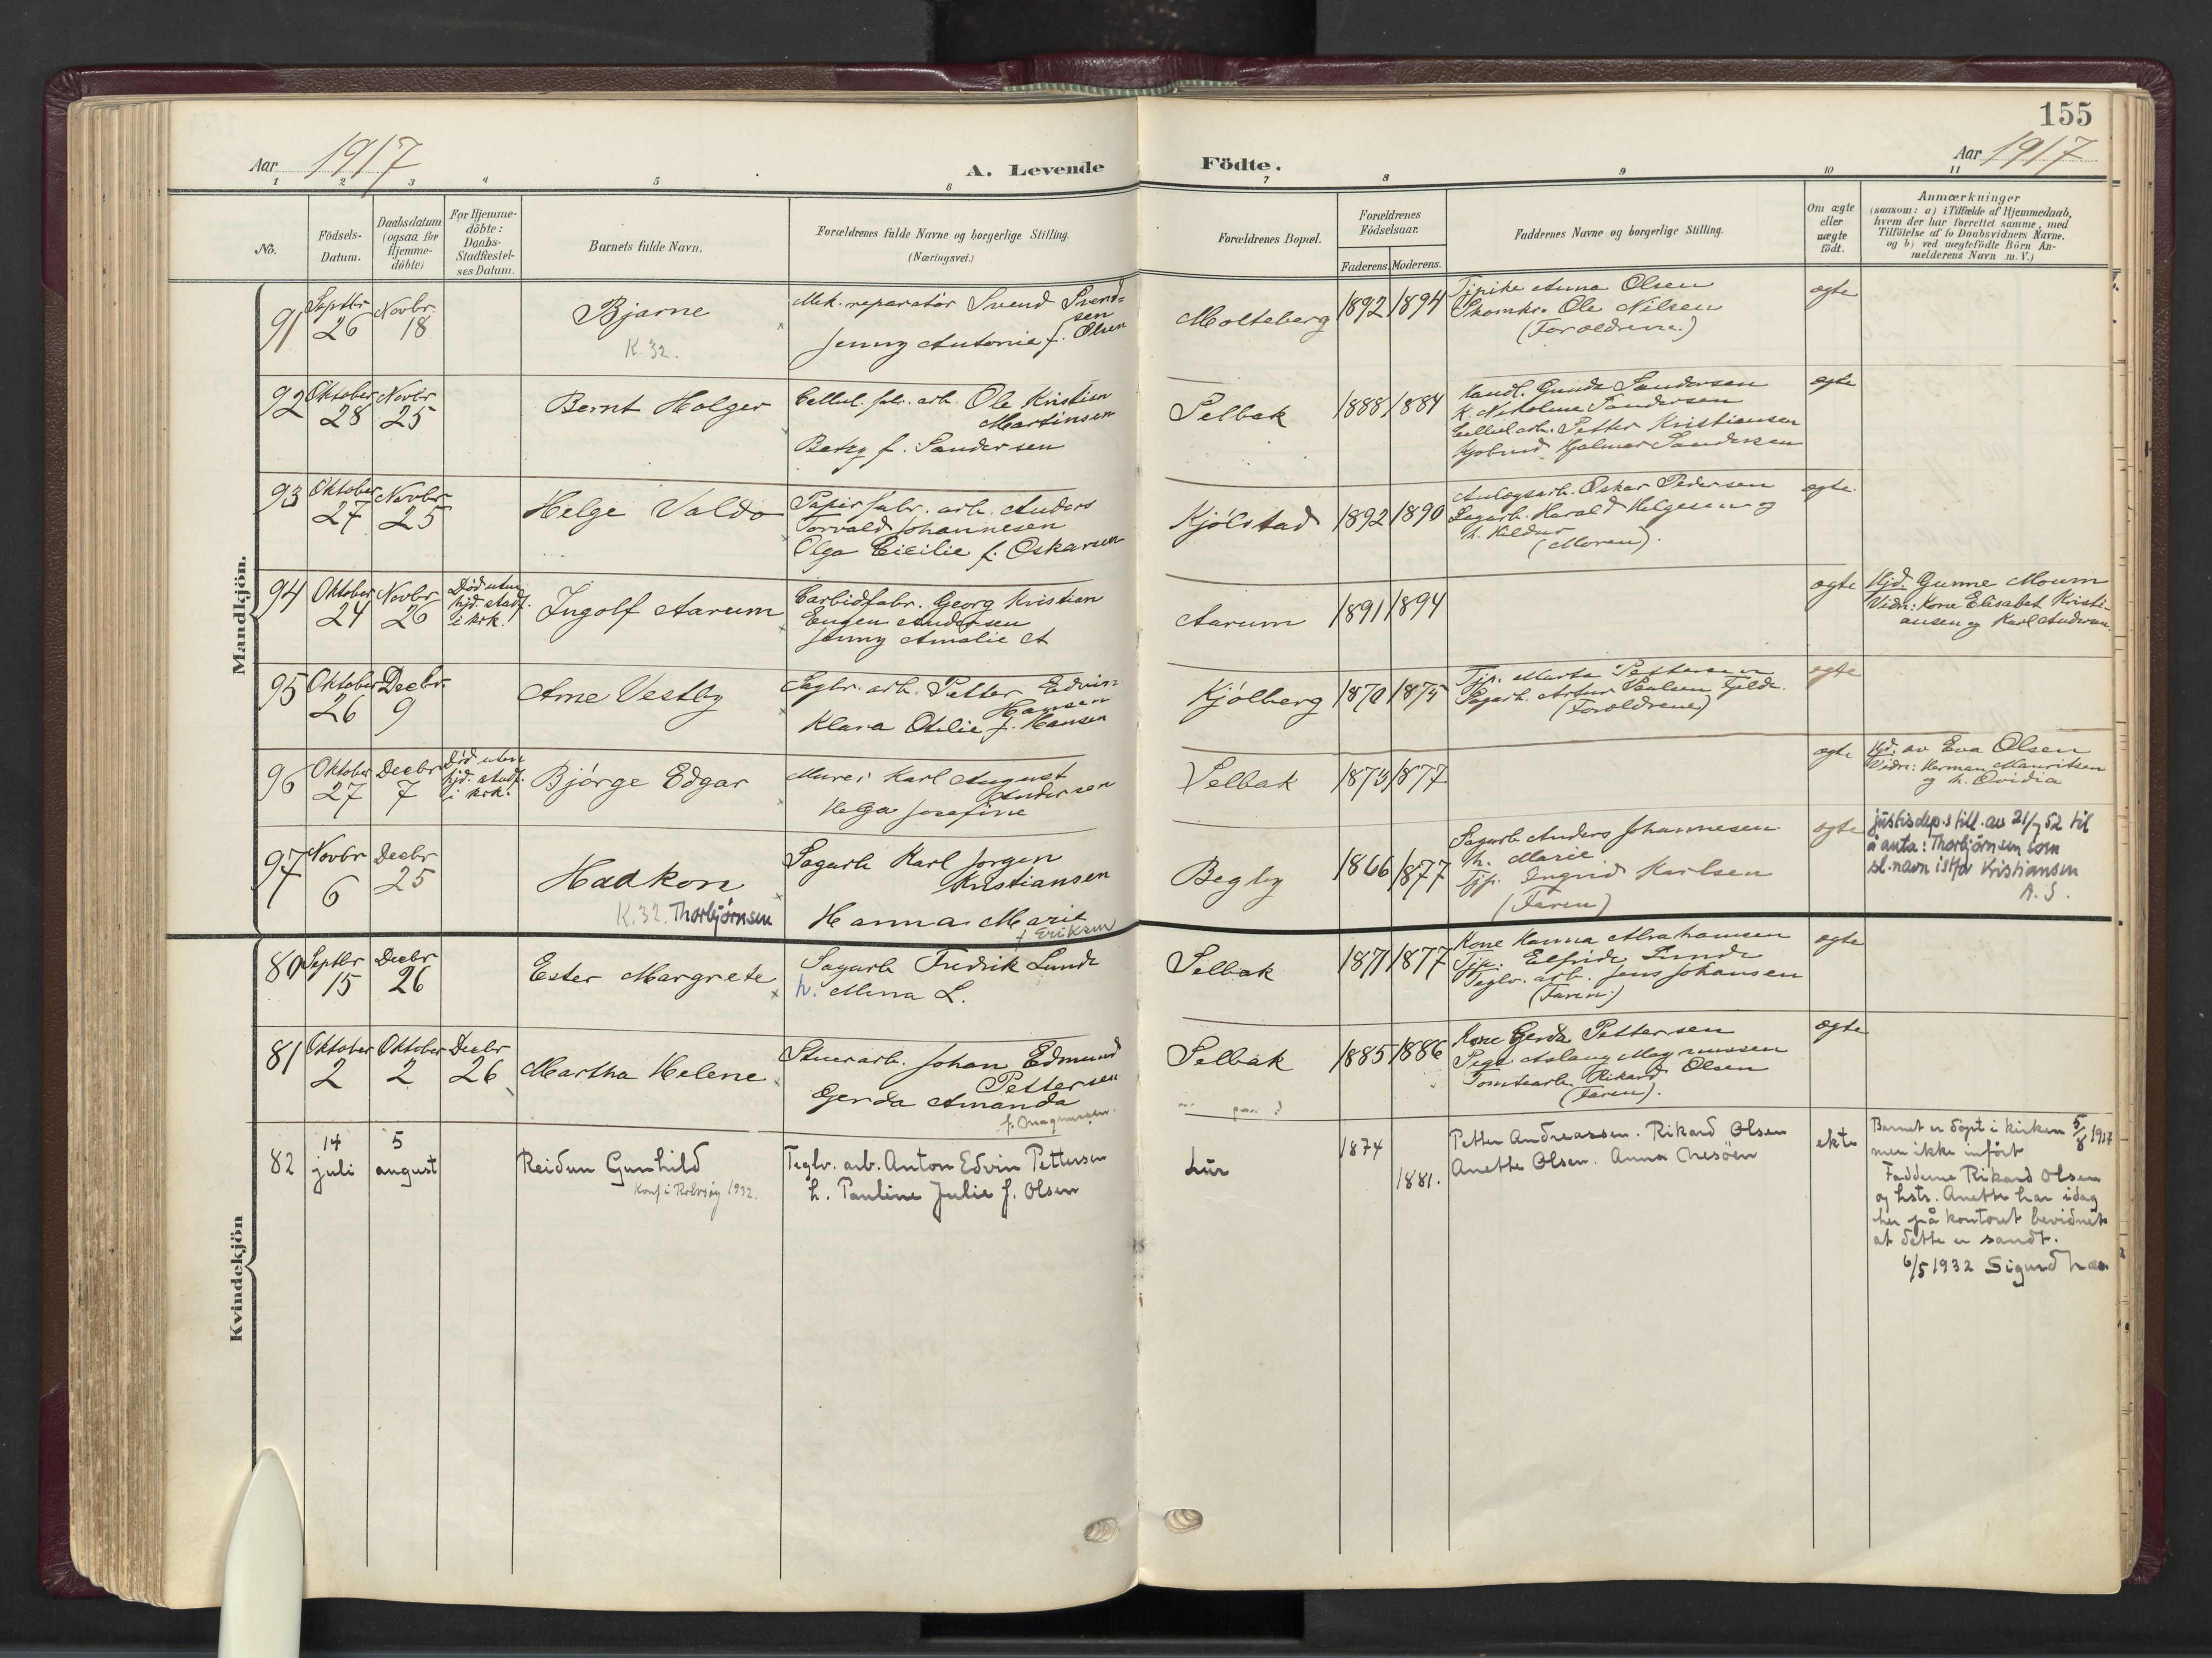 155
Aar 1917
A. Levende
Födte.
Aar 1917
1 2 3 4 5 6 7 8 9 10 11
No.
Födsels-
Datum.
Daabsdatum
(ogsaa for
Hjemme-
döbte)
For Hjemme-
döbte:
Daabs-
Stadfæstel-
ses Datum.
Barnets fulde Navn.
Forældrenes fulde Navne og borgerlige Stilling.
(Næringsvei.)
Forældrenes Bopæl.
Forældrenes
Födselsaar.
Faderens. Moderens.
Faddernes Navne og borgerlige Stilling.
Om ægte
eller
uægte
födt.
Anmærkninger
(saasom: a) i Tilfælde af Hjemmedaab,
hvem der har forrettet samme, med
Tilföielse af to Daabsvidners Navne.
og b) ved uægtefödte Börn An-
melderens Navn m. V.)
Mandkjön.
91
Septbr
26
Novbr.
18
Bjarne
K. 32.
Mek. reparatör Svend Svend-
sen
Jenny Antonie f. Olsen
Molteberg
1892 1894
Tjpike Anna Olsen
Skomkr. Ole Nilsen
(Foroeldrene.)
ægte
92
Oktober
28
Novbr
25
Bernt Holger
Cellul. fabr. arb. Ole Kristian
Martinsen
Betzy f. Sandersen
Selbak
1888 1884
Handl. Gunda Sandersen
K. Nikoline Sandersen
Cellul arb. Petter Kristiansen
Hjalmar Sandersen
ægte
93
Oktober
27
Novbr
25
Helge Valdo
Papirfabr. arb. Anders
Torvald Johannesen
Olga Cicilie f. Oskarsen
Kjölstad
1892 1890
Anlægsarb. Oskar Pedersen
Sagarb. Harald Helgesen og
h. Hildur
(Moren).
ægte.
94
Oktober
24
Novbr
26
Död uten
hjd. stadf.
i kirk.
Ingolf Aarum
Carbidfabr. Georg Kristian
Eugen Andersen
Jenny Amalie A
Aarum
1891 1894
ægte
Hjd. Gunne Moum
Vidn: Kone Elisabet Kristi-
ansen og Karl Andersen.
95
Oktober
26
Decbr.
9
Arne Vestby
Teglv. arb. Petter Edvin
Hansen
Klara Otilie f. Hansen
Kjölberg
1870 1875
Tjp. Marta Pettersen
Sagarb. Artur Paulsen
(Foroeldrene)
ægte
96
Oktober
27
Decbr
7
Död uten
hjd. stadf.
i kirk.
Bjørge Edgar
Murer Karl August
Andersen
Helga Josefine
Selbak
1875 1877
ægte
Hjd. av Eva Olsen
Vidn: Herman Mauritsen
og h. Ovidia
97
Novbr
6
Decbr
25
Haakon
K. 32. Thorbjørnsen
Sagarb Karl Jorgen
Kristiansen
Hanna Marie
f Eriksen
Begby
1866 1877
Sagarb Anders Johannesen
h. Marie
Tjp. Ingrid Karlsen
(Faren)
ægte
justisdep.s till. av 21/7 52 til
å anta: Thorbjørnsen som
sl.navn istfor Kristiansen
A. S.
Kvindekjön
80
Septbr
15
Decbr
26
Ester Margrete
Sagarb Fredrik Lunde
h. Mina L.
Selbak
1871 1877
Kone Hanna Abrahamsen
Tjp. Elfride Lunde
Teglv. arb. Jens Johansen
(Faren.)
ægte
81
Oktober
2
Oktober
2
Decbr
26
Martha Helene
Stuerarb. Johan Edmund
Pettersen
Gerda Amanda
f. Magnussen.
Selbak
1885 1886
Kone Gerda Pettersen
Pige Aslaug Magnussen
Tomtearb. Rikard Olsen
(Faren).
ægte
82
14
juli
5
august
Reidun Gunhild
Konf i Rolvsøy 1932.
Teglv. arb. Anton Edvin Pettersen
h. Pauline Julie f. Olsen
Lur
1874
1881.
Petter Andreassen. Rikard Olsen
Anette Olsen. Anna Nesöen
ekte
Barnet er döpt i kirken 5/8 1917
men ikke infört
Fadderne Rikard Olsen
og hstr. Anette har idag
her på kontoret bevidnet
at dette er sandt.
6/5 1932 Sigurd